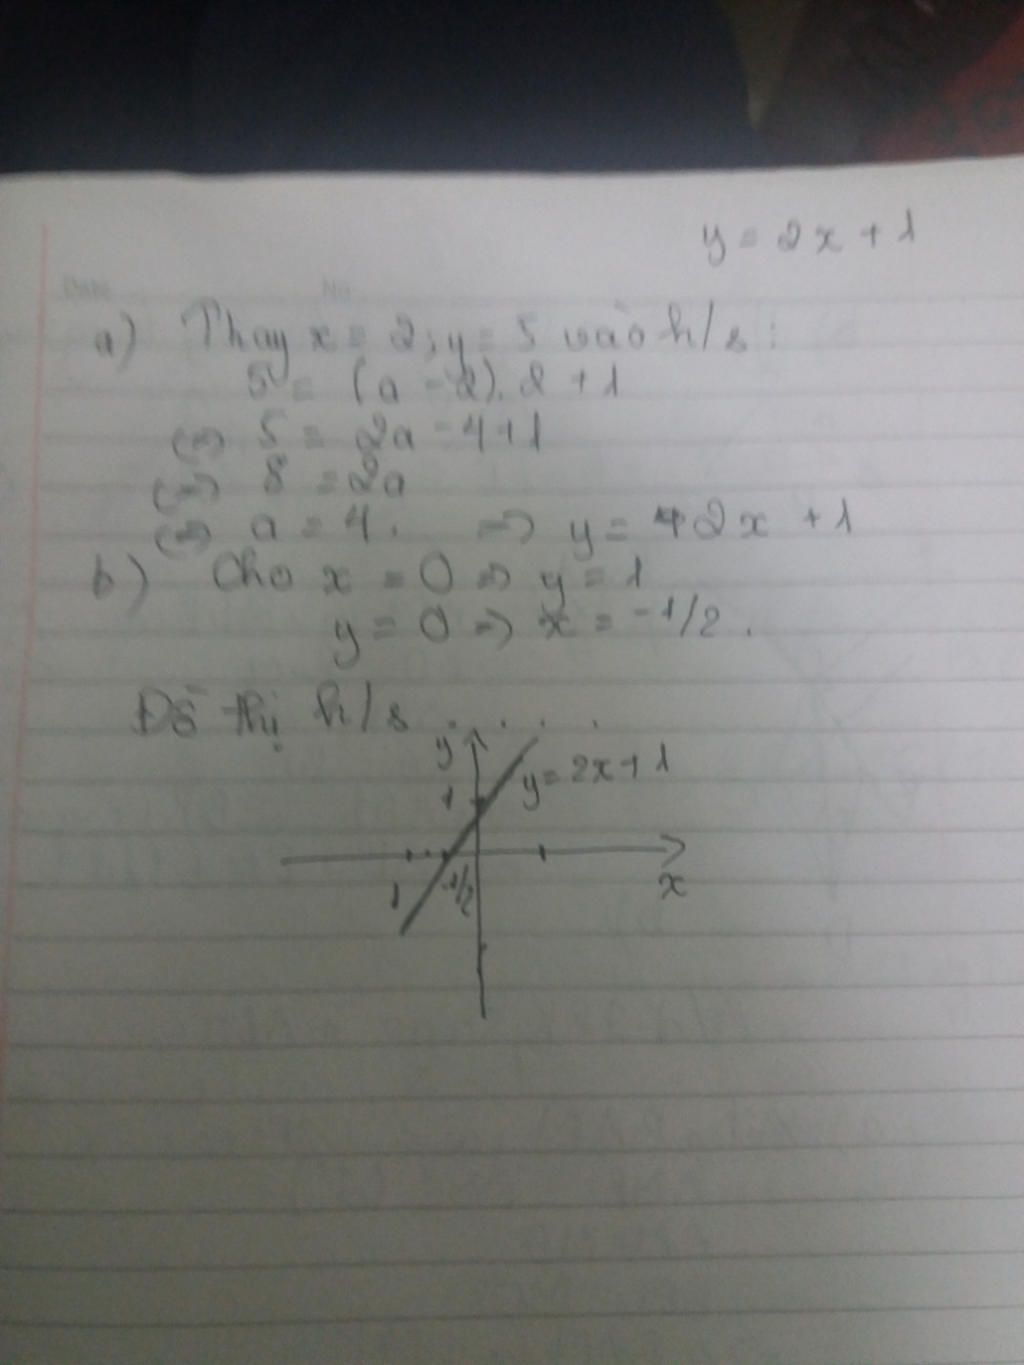 y = 2x + 1
Date No
a) Thay x = 2; y = 5 vào h/s:
5 = (a - 2).2 + 1
(=) 5 = 2a - 4 + 1
(=) 8 = 2a
(=) a = 4. => y = 2x + 1
b) Cho x = 0 => y = 1
y = 0 => x = -1/2.
Đồ thị h/s . . . .
y
y = 2x + 1
1
1 -1/2
x